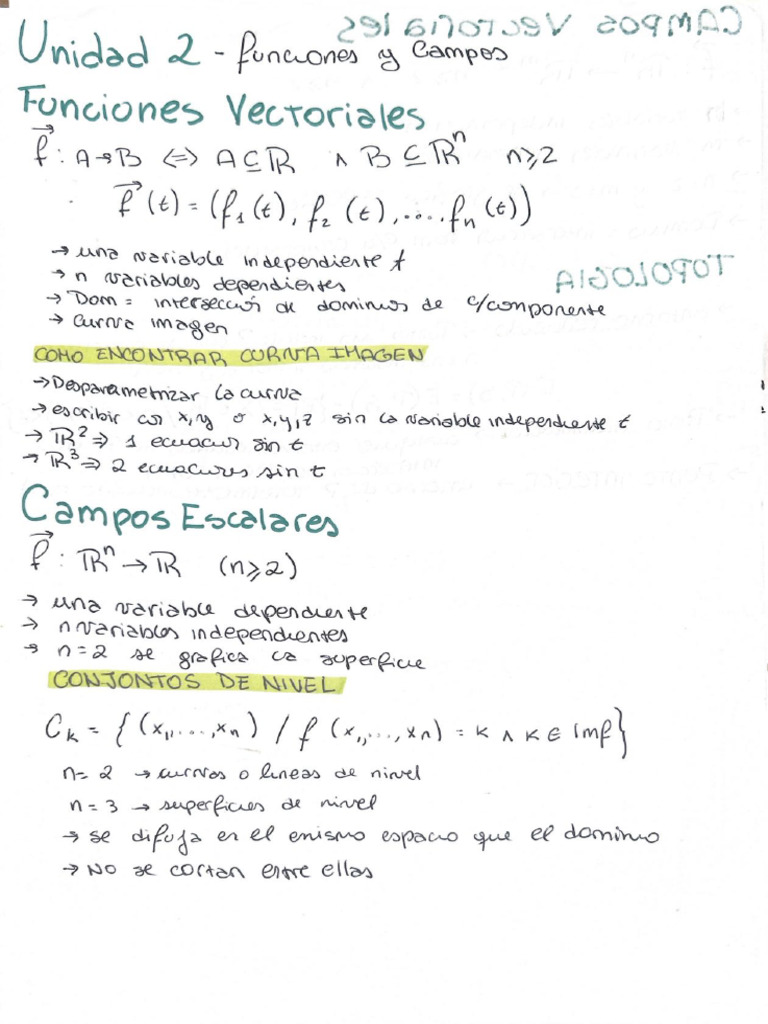 CAMPOS Vectoriales
Unidad 2 - funciones y Campos
Funciones Vectoriales
f⃗ : A→B ⇔ A⊆ℝ ∧ B⊆ℝⁿ n≥2
f⃗(t) = (f₁(t), f₂(t), .... fₙ(t))
→ una variable independiente t
→ n variables dependientes
TOPOLOGIA
→ Dom = intersección de dominios de c/componente
→ curva imagen
COMO ENCONTRAR CURVA IMAGEN
→ Desparametrizar la curva
→ escribir con x,y o x,y,z sin la variable independiente t
→ ℝ² ⇒ 1 ecuacion sin t
→ ℝ³ ⇒ 2 ecuaciones sin t
Campos Escalares
f⃗ : ℝⁿ → ℝ (n≥2)
→ una variable dependiente
→ n variables independientes
→ n=2 se grafica la superficie
CONJUNTOS DE NIVEL
Cₖ = {(x₁,...,xₙ) / f (x₁,...,xₙ) = k ∧ k ∈ Imf}
n= 2 → curvas o lineas de nivel
n = 3 → superficies de nivel
→ se dibuja en el mismo espacio que el dominio
→ NO se cortan entre ellas